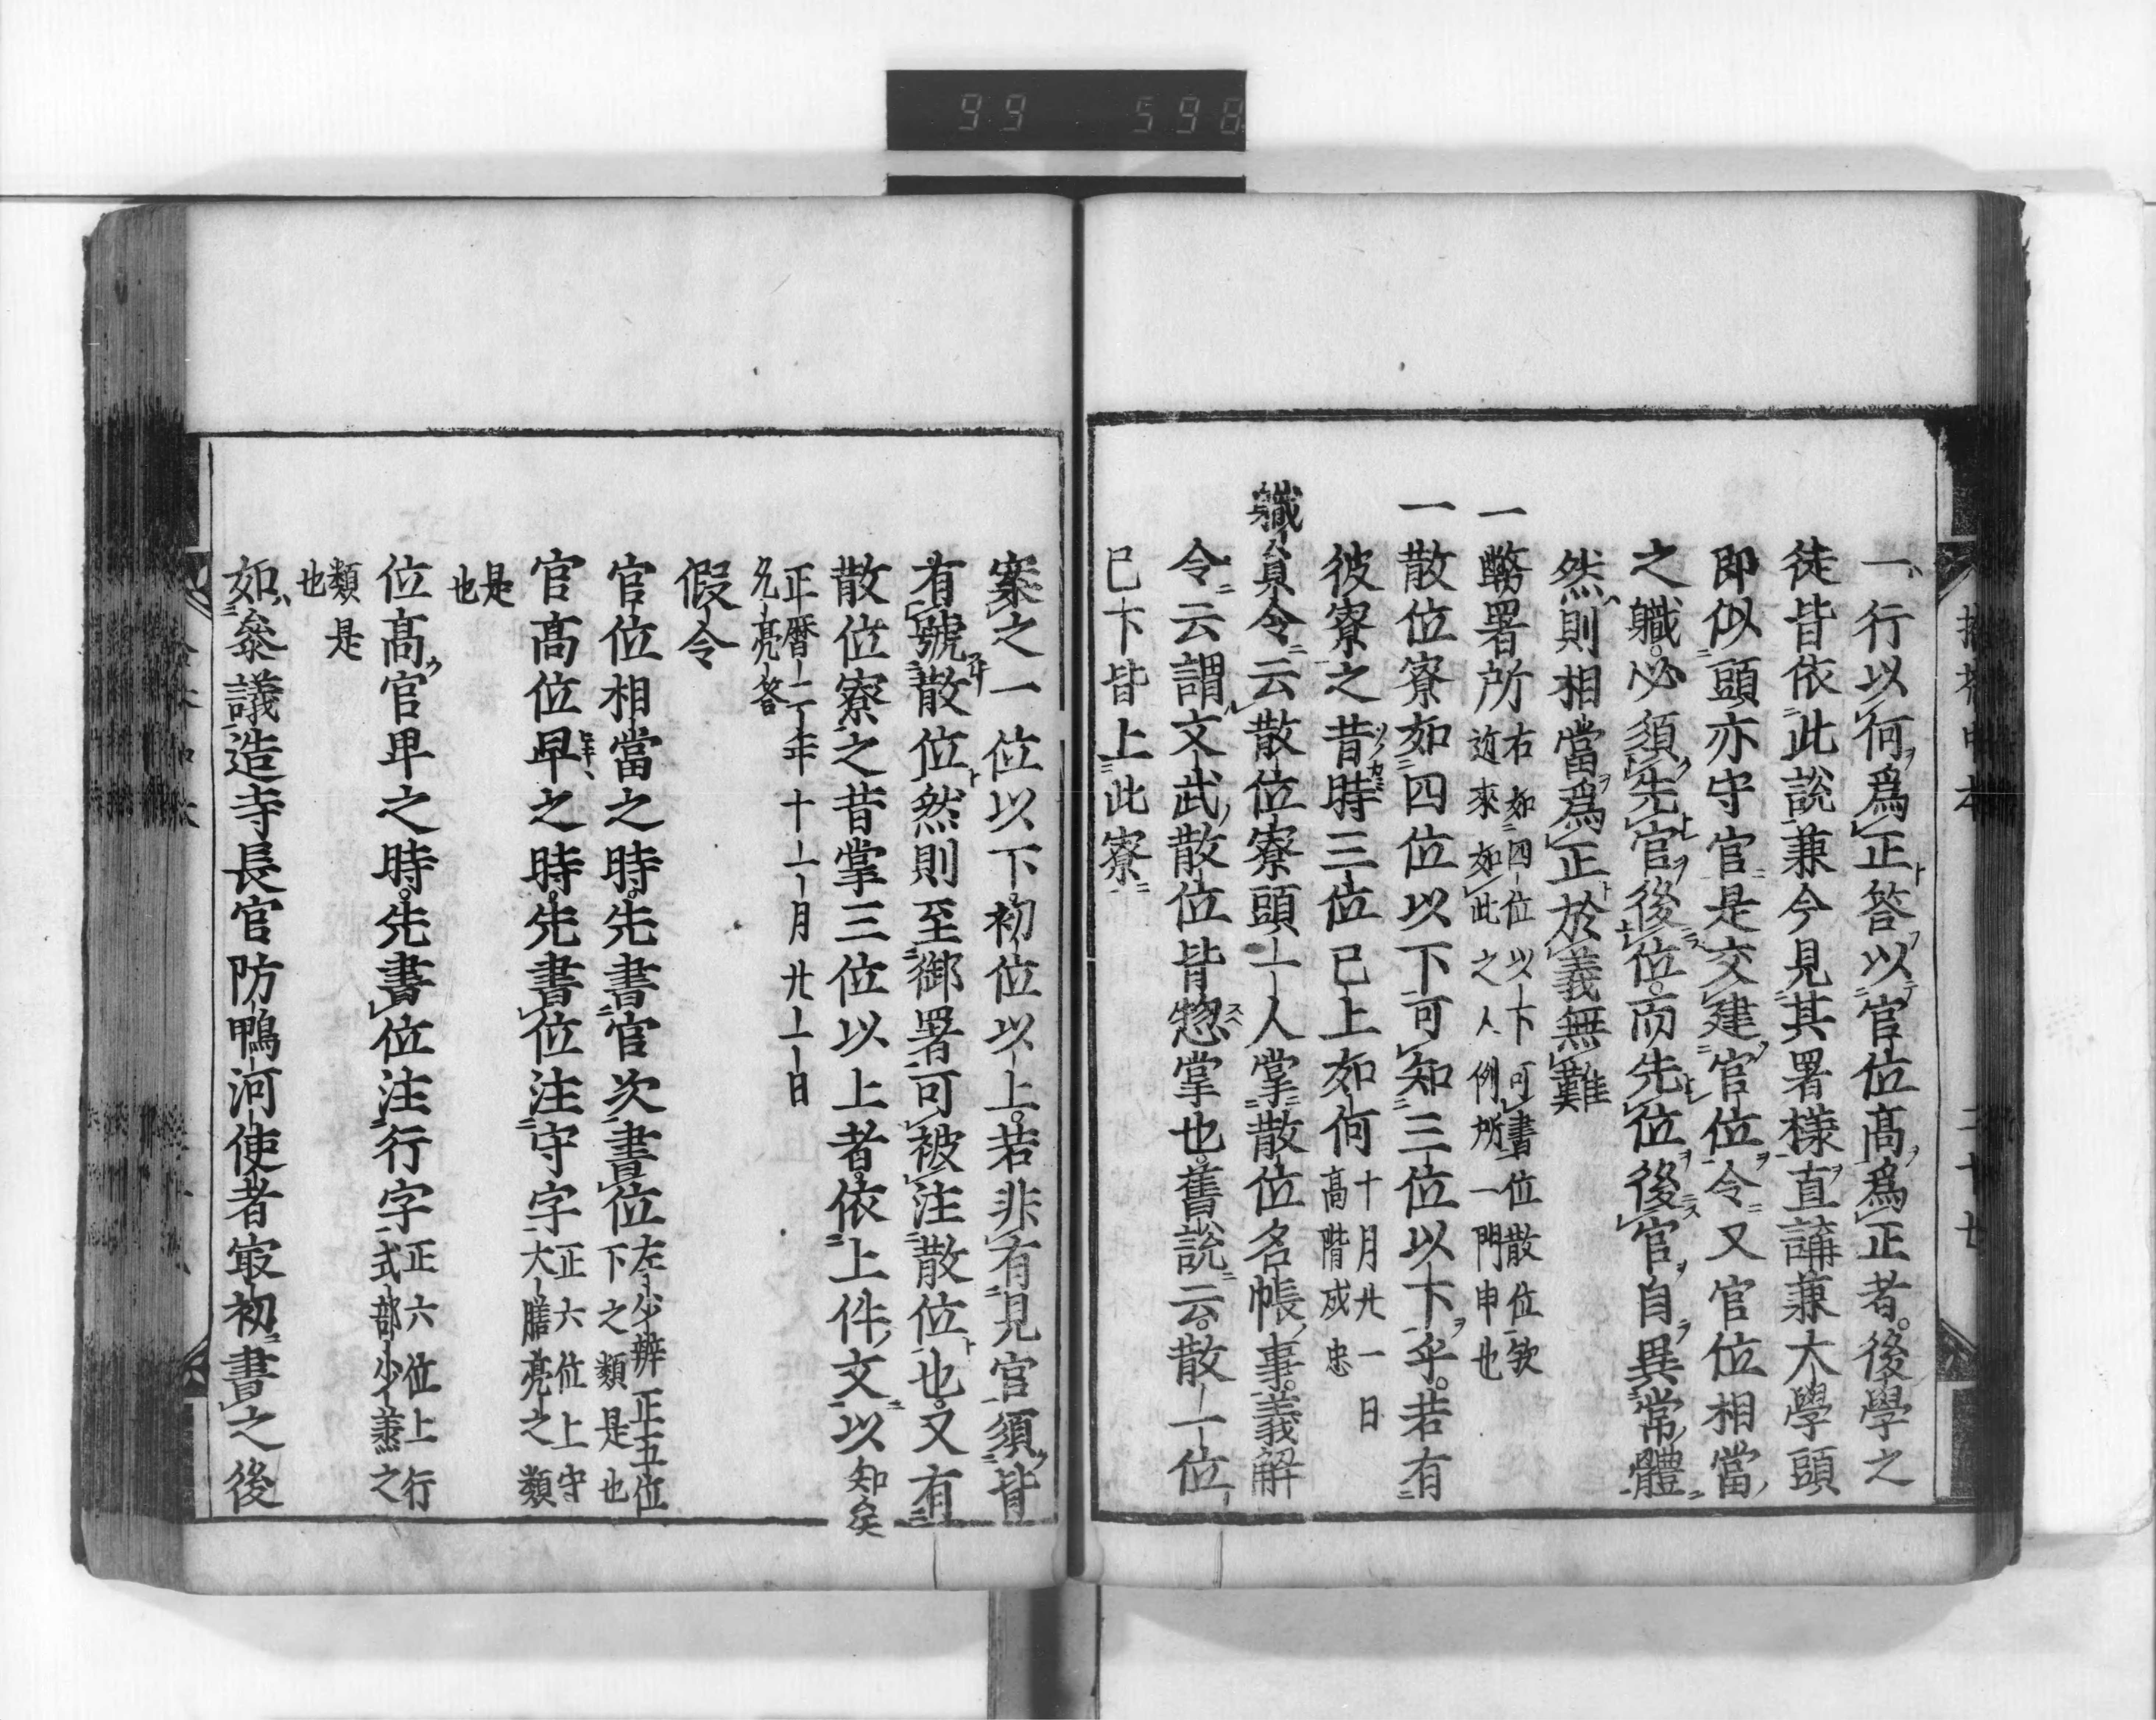 99 598
一行以何爲正答以官位高爲正者後學之
徒皆依此說兼今見其署樣直講兼大學頭
即似頭亦守官是交建官位令又官位相當
之職必須先官後位而先位後官自異常體
然則相當爲正於義無難
一 弊署所 右如四位以下可書位散位欤
迩來如此之人例所一門申也
一 散位寮如四位以下可知三位以下乎若有
彼寮之昔時三位已上如何 十月廿一日
高階成忠
職員令云散位寮頭一人掌散位名帳事義解
令云謂文武散位皆惣掌也舊說云散一位
已下皆上此寮
案之一位以下初位以上若非有見官須皆
有號散位然則至御署可被注散位也又有
散位寮之昔掌三位以上者依上件文以知矣
正暦二年十一月廿一日
允亮答
假令
官位相當之時先書官次書位 左少辨正五位
下之類是也
官高位卑之時先書位注守字 正六位上守
大膳亮之類
是
也
位高官卑之時先書位注行字 正六位上行
式部少兼之
類是
也
如參議造寺長官防鴨河使者㝡初書之後